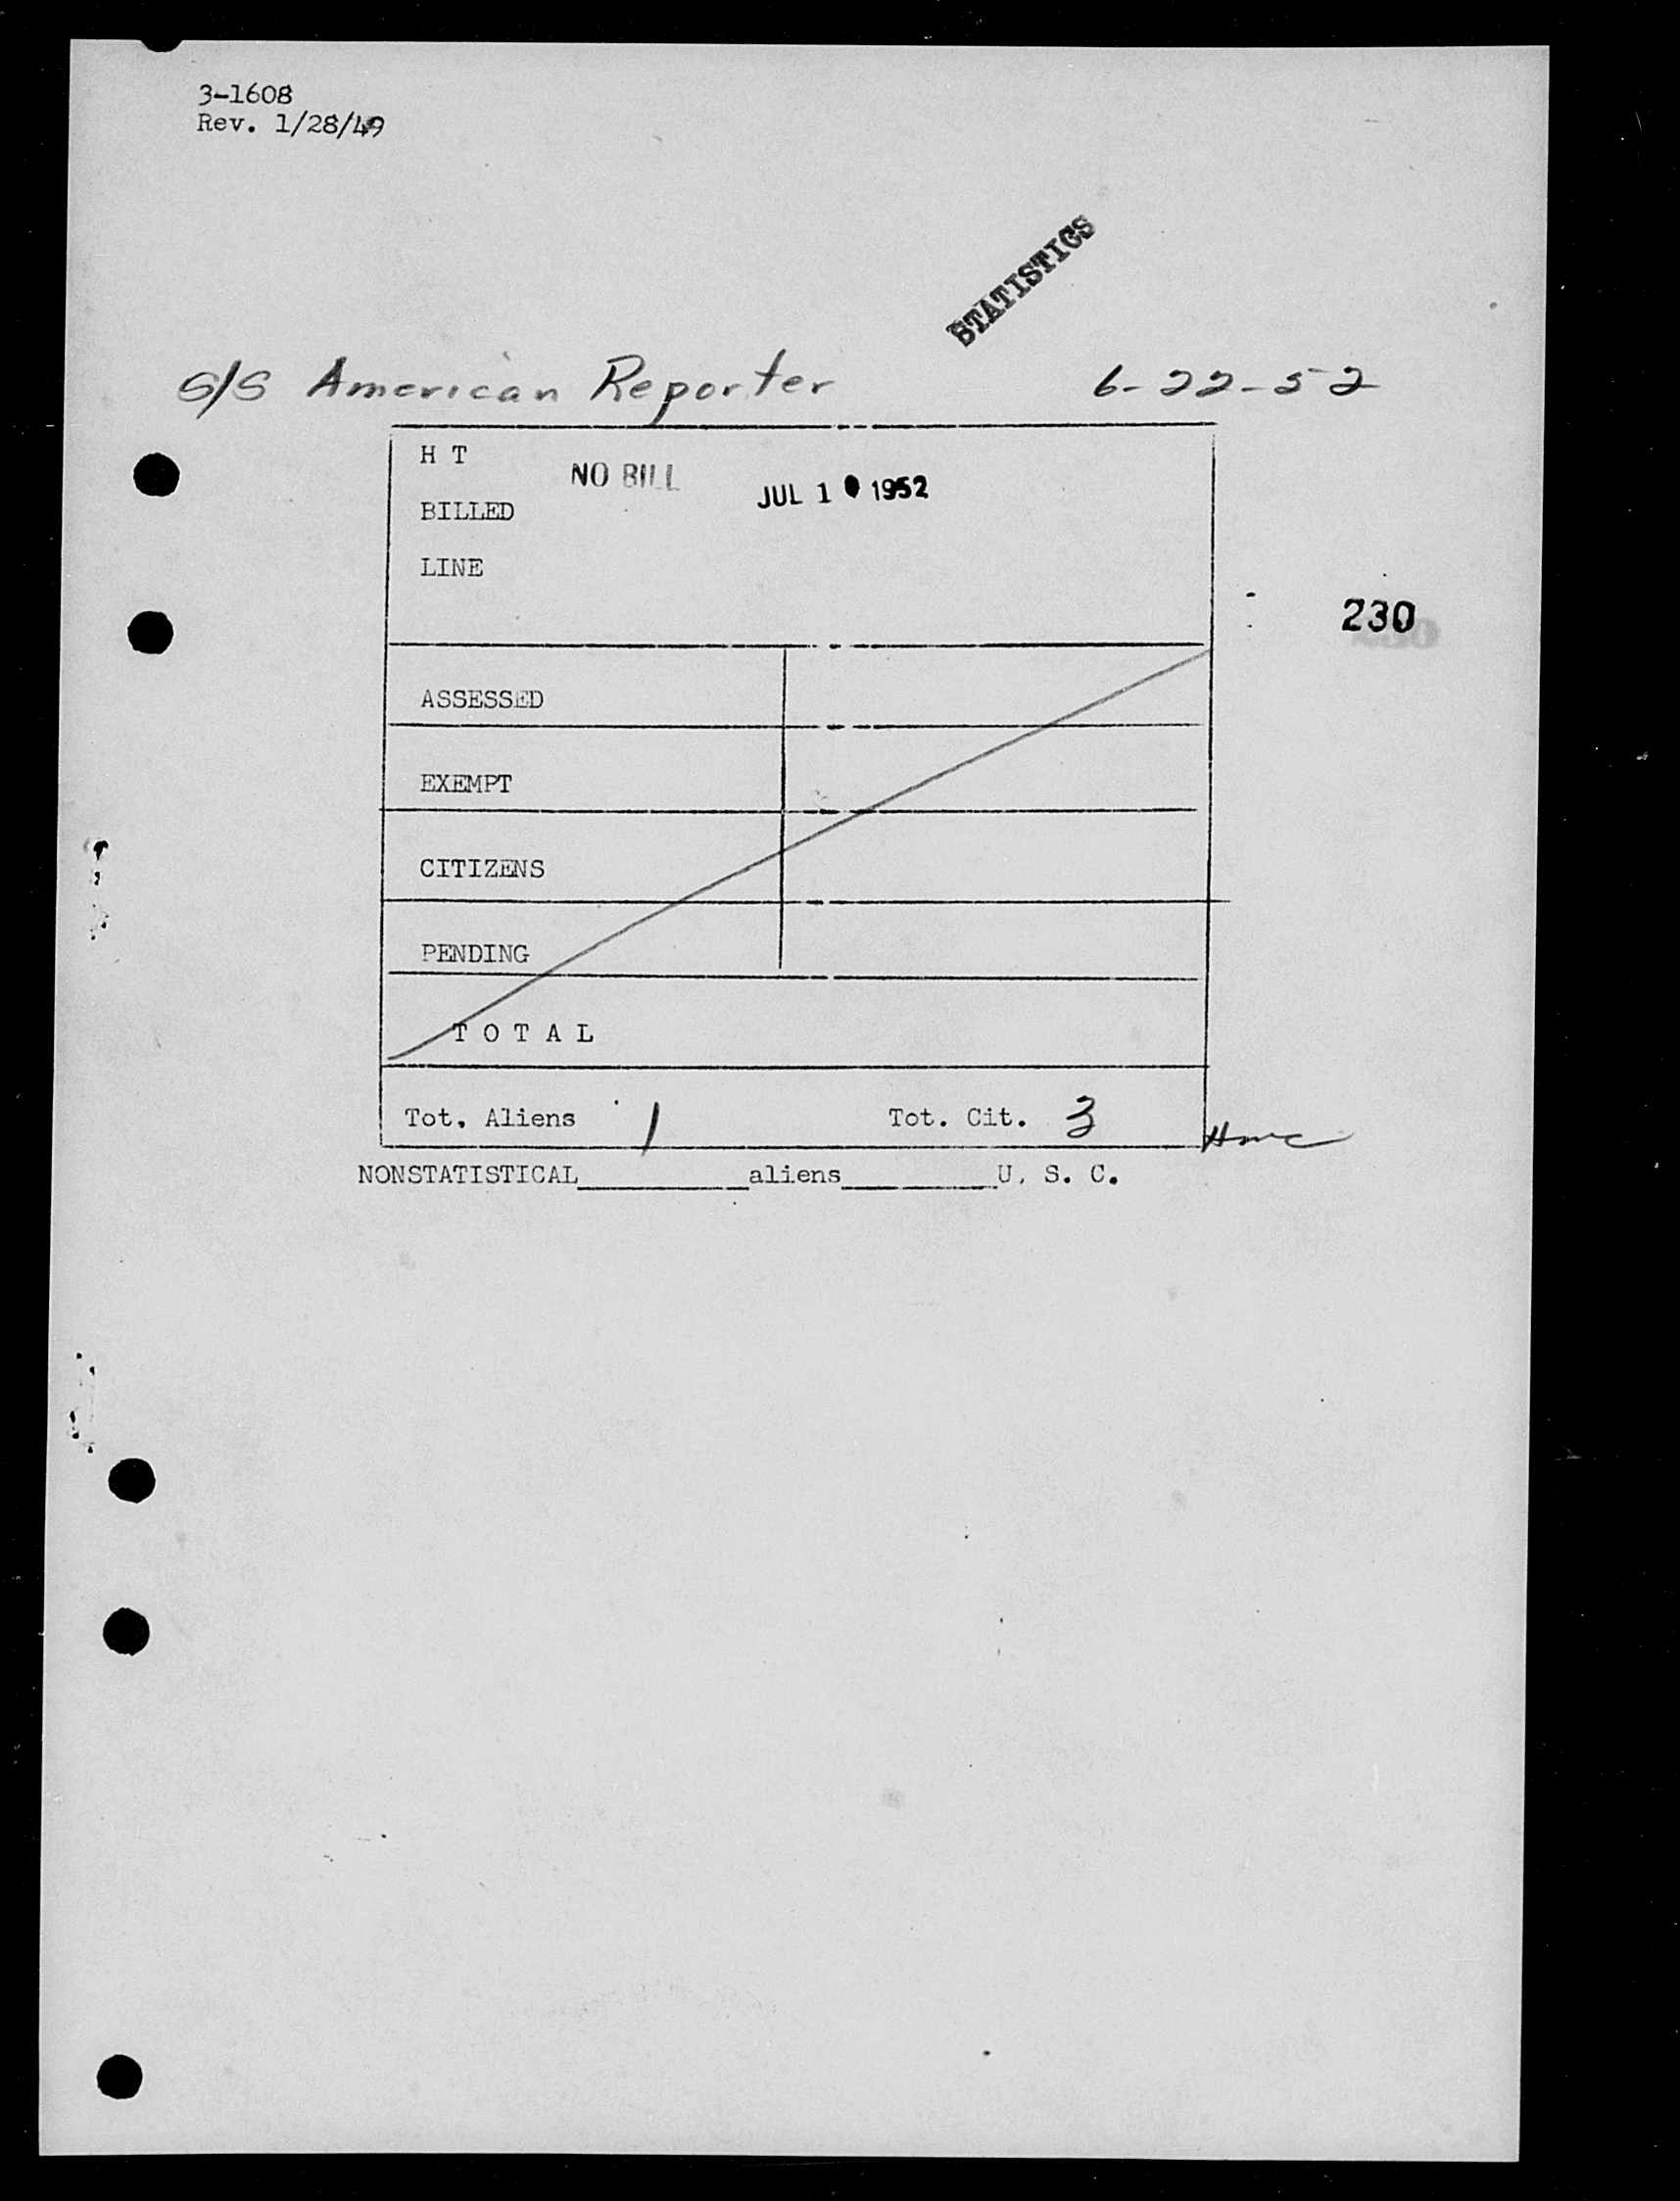 3-1608
Rev. 1/28/49
STATISTICS
S/S American Reporter 6-22-52
H T
NO BILL JUL 1 1952
BILLED
LINE
230
ASSESSED
EXEMPT
CITIZENS
PENDING
T O T A L
Tot. Aliens 1 Tot. Cit. 3
NONSTATISTICAL aliens U. S. C.